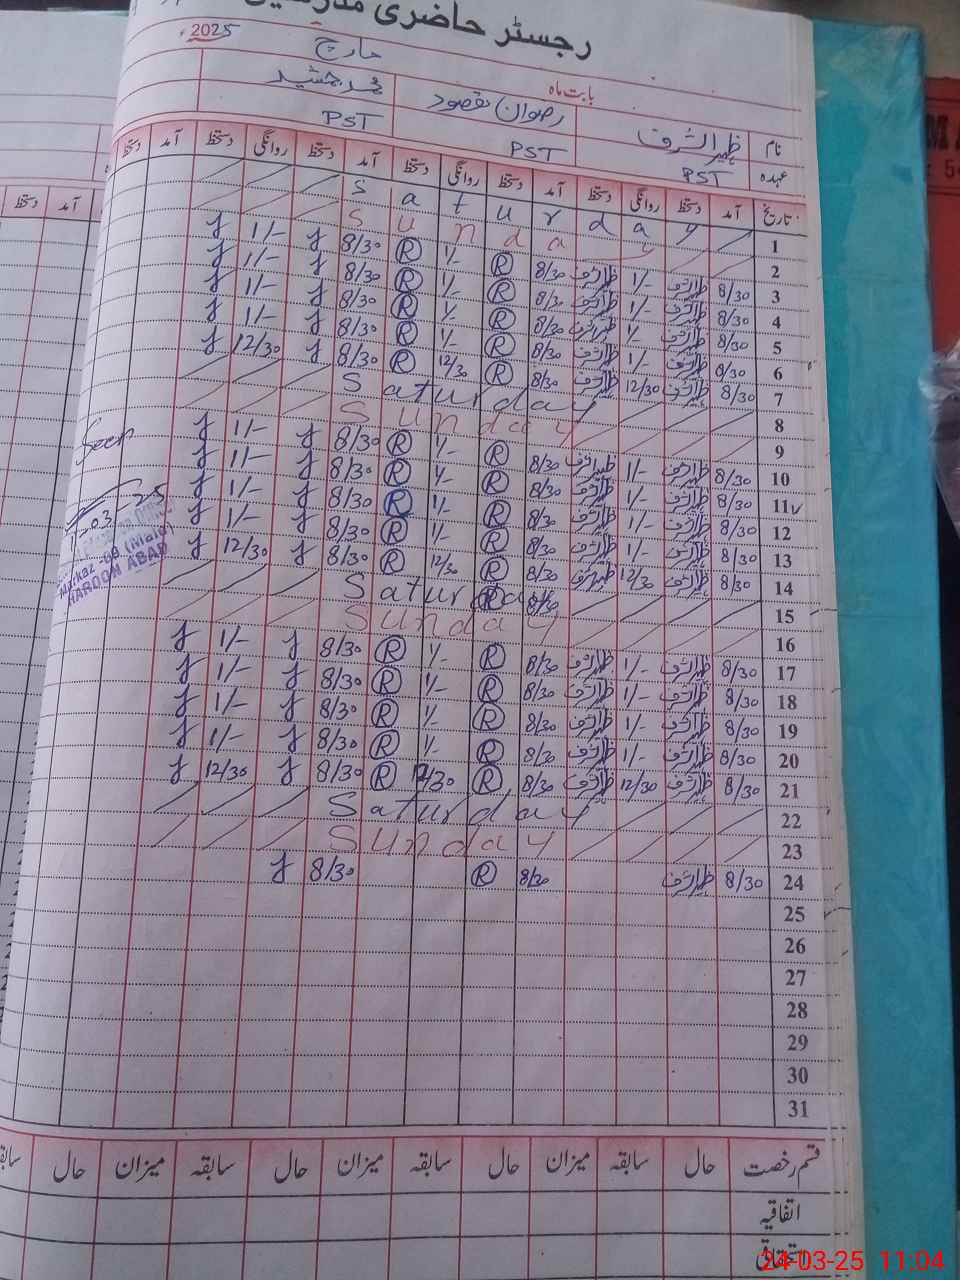 رجسٹر حاضری مدرسین
بابت ماہ مارچ 2025ء
نام ظہیر اشرف رضوان مقصود محمد جمشید
عہدہ PST PST PST
تاریخ آمد دستخط روانگی دستخط آمد دستخط روانگی دستخط آمد دستخط روانگی دستخط آمد دستخط
1 Saturday
2 Sunday
3 8/30 ظہیر اشرف 1/- ظہیر اشرف 8/30 R 1/- R 8/30 J 1/- J
4 8/30 ظہیر اشرف 1/- ظہیر اشرف 8/30 R 1/- R 8/30 J 1/- J
5 8/30 ظہیر اشرف 1/- ظہیر اشرف 8/30 R 1/- R 8/30 J 1/- J
6 8/30 ظہیر اشرف 1/- ظہیر اشرف 8/30 R 1/- R 8/30 J 1/- J
7 8/30 ظہیر اشرف 12/30 ظہیر اشرف 8/30 R 12/30 R 8/30 J 12/30 J
8 Saturday
9 Sunday
10 8/30 ظہیر اشرف 1/- ظہیر اشرف 8/30 R 1/- R 8/30 J 1/- J
Seen
11 8/30 ظہیر اشرف 1/- ظہیر اشرف 8/30 R 1/- R 8/30 J 1/- J
12 8/30 ظہیر اشرف 1/- ظہیر اشرف 8/30 R 1/- R 8/30 J 1/- J
13 8/30 ظہیر اشرف 1/- ظہیر اشرف 8/30 R 1/- R 8/30 J 1/- J
14 8/30 ظہیر اشرف 12/30 ظہیر اشرف 8/30 R 12/30 R 8/30 J 12/30 J
03-25
Markaz (Male)
HAROON ABAD
15 Saturday R 8/30
16 Sunday
17 8/30 ظہیر اشرف 1/- ظہیر اشرف 8/30 R 1/- R 8/30 J 1/- J
18 8/30 ظہیر اشرف 1/- ظہیر اشرف 8/30 R 1/- R 8/30 J 1/- J
19 8/30 ظہیر اشرف 1/- ظہیر اشرف 8/30 R 1/- R 8/30 J 1/- J
20 8/30 ظہیر اشرف 1/- ظہیر اشرف 8/30 R 1/- R 8/30 J 1/- J
21 8/30 ظہیر اشرف 12/30 ظہیر اشرف 8/30 R 12/30 R 8/30 J 12/30 J
22 Saturday
23 Sunday
24 8/30 ظہیر اشرف 8/30 R 8/30 J
25
26
27
28
29
30
31
قسم رخصت حال سابقہ میزان حال سابقہ میزان حال سابقہ میزان حال سابقہ
اتفاقیہ
استحقاقی
24-03-25 11:04